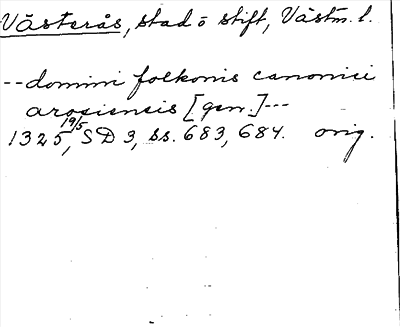 Västerås, stad o stift, Västm. l.
--domini folkonis canonici
arosiensis [gen.]---
1325 19/5, SD 3, ss. 683, 684. orig.